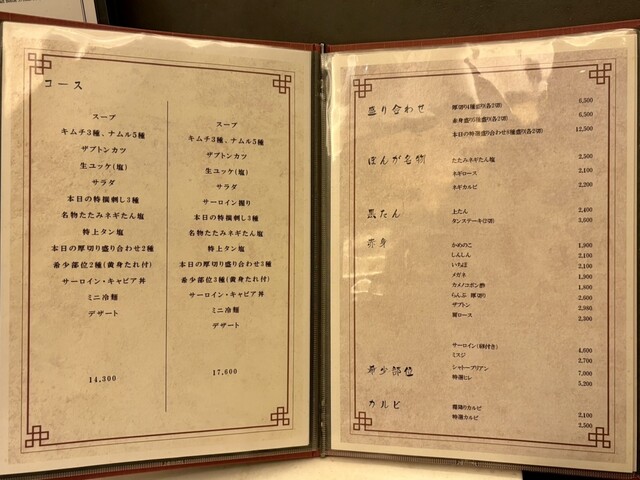 コース
スープ
キムチ3種、ナムル5種
ザブトンカツ
生ユッケ(塩)
サラダ
本日の特撰刺し3種
名物たたみネギたん塩
特上タン塩
本日の厚切り盛り合わせ2種
希少部位2種(黄身たれ付)
サーロイン・キャビア丼
ミニ冷麺
デザート
14,300
スープ
キムチ3種、ナムル5種
ザブトンカツ
生ユッケ(塩)
サラダ
サーロイン握り
本日の特撰刺し3種
名物たたみネギたん塩
特上タン塩
本日の厚切り盛り合わせ3種
希少部位3種(黄身たれ付)
サーロイン・キャビア丼
ミニ冷麺
デザート
17,600
盛り合わせ
厚切り4種盛り(各2切) 6,500
赤身盛り6種盛り(各2切) 6,500
本日の特選盛り合わせ8種盛り(各2切) 12,500
ぽんが名物
たたみネギたん塩 2,500
ネギロース 2,100
ネギカルビ 2,200
黒たん
上たん 2,400
タンステーキ(2切) 3,000
赤身
かめのこ 1,900
しんしん 2,100
いちぼ 2,100
メガネ 1,900
カメノコポン酢 1,800
らんぷ(厚切り) 2,600
ザブトン 2,980
肩ロース 2,300
サーロイン 4,000
ミスジ 2,700
希少部位
シャトーブリアン 7,000
特選ヒレ 5,200
カルビ
霜降りカルビ 2,100
特選カルビ 3,500